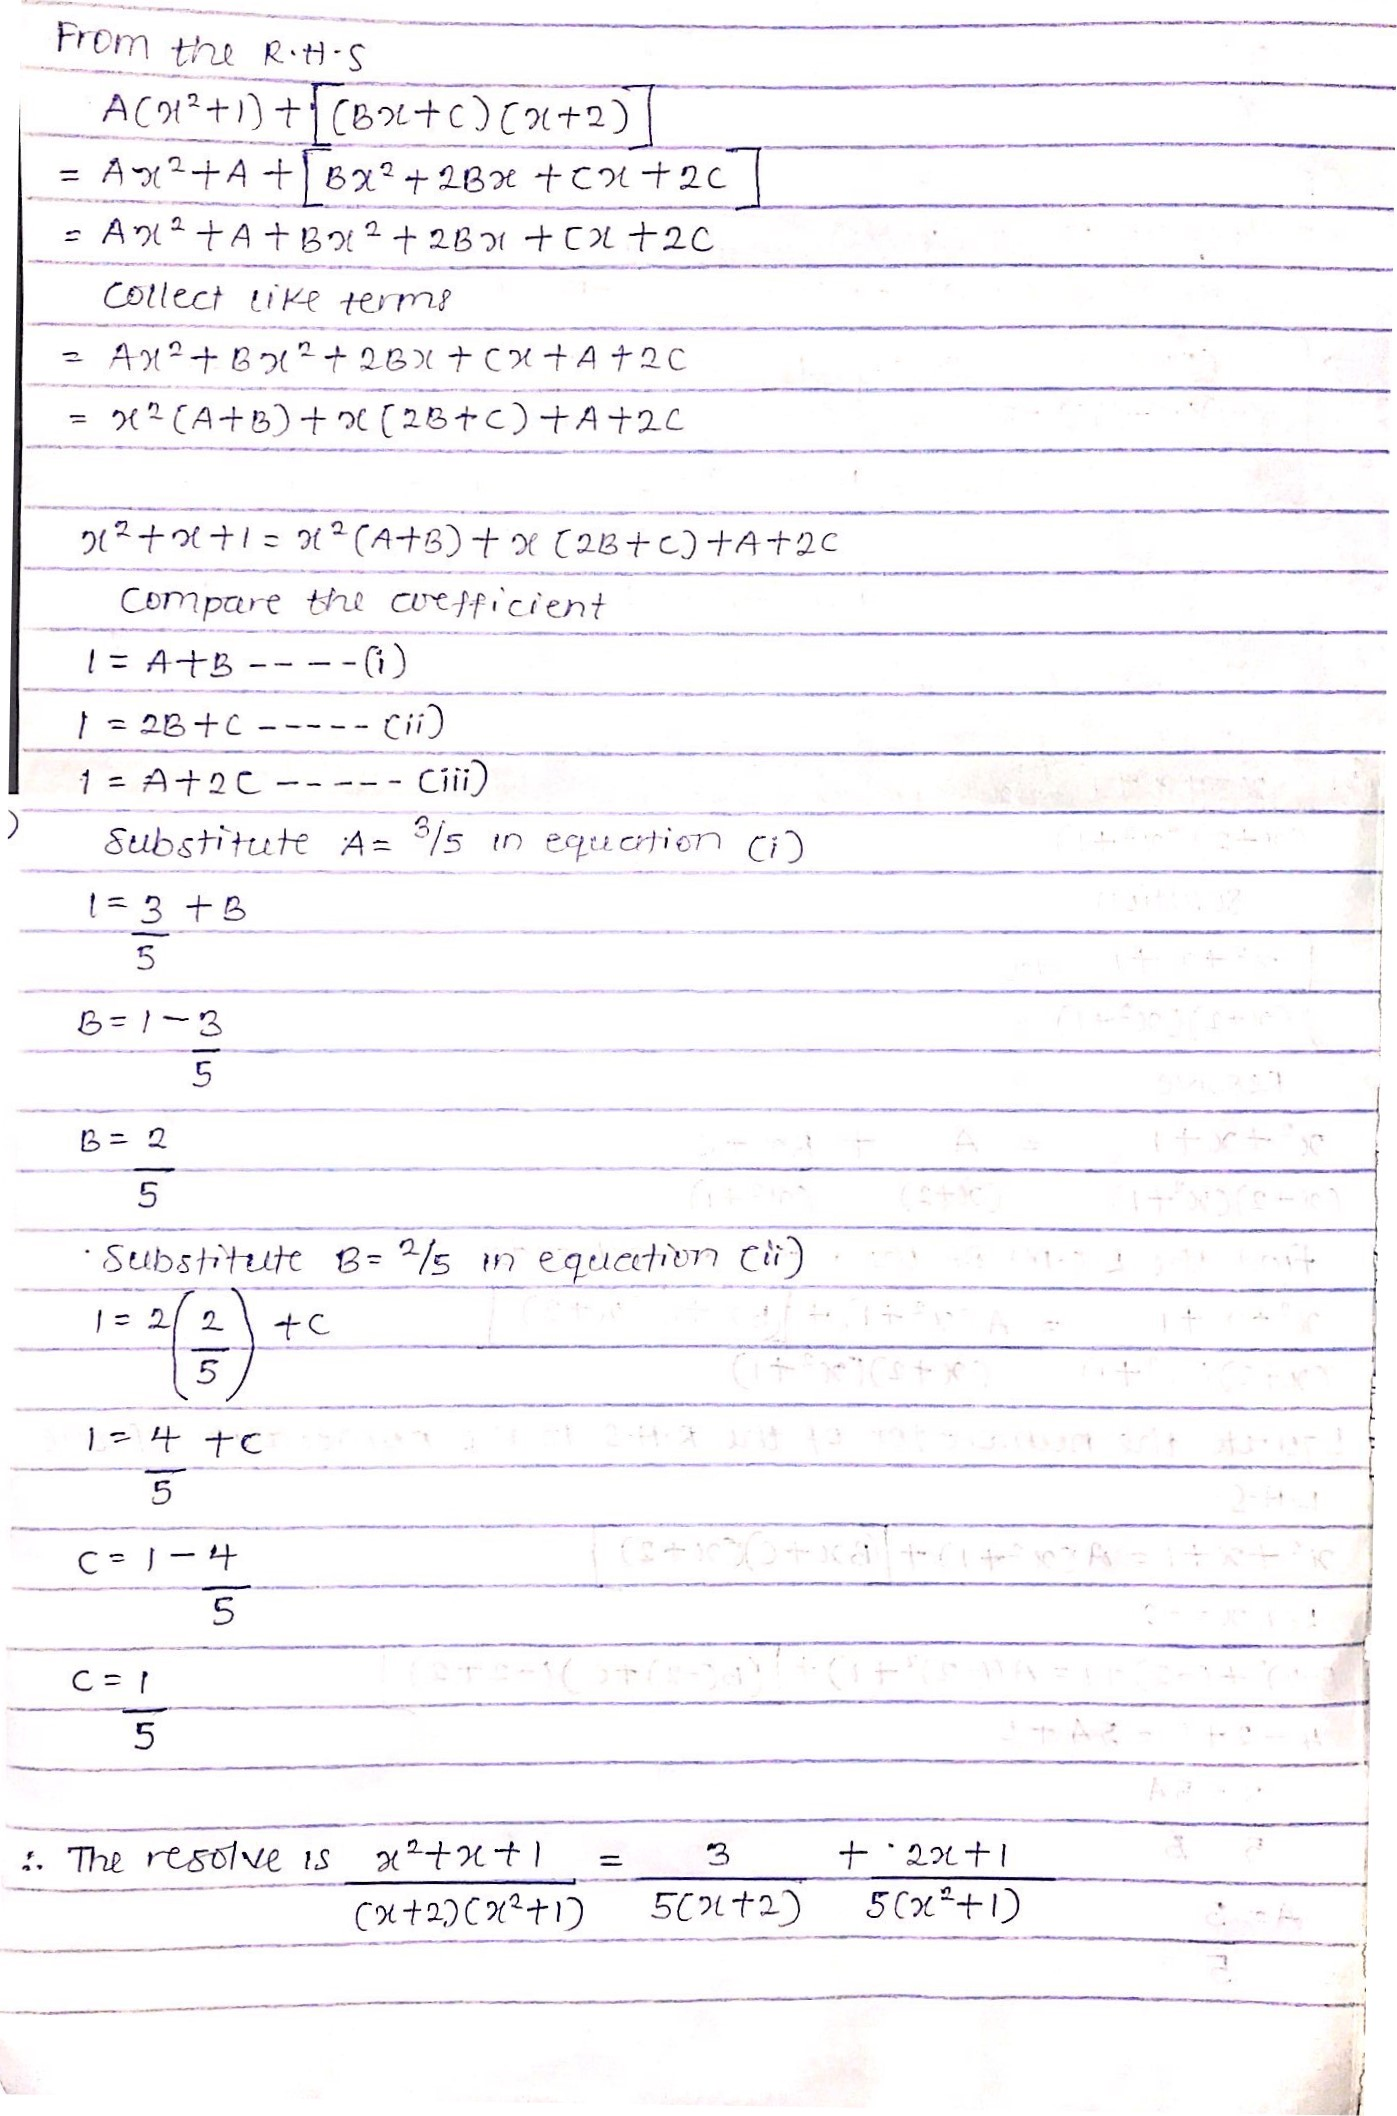 From the R.H.S
A(x²+1) + [(Bx+C)(x+2)]
= Ax²+A+[Bx²+2Bx+Cx+2C]
= Ax²+A+Bx²+2Bx+Cx+2C
Collect like terms
= Ax²+Bx²+2Bx+Cx+A+2C
= x²(A+B)+x(2B+C)+A+2C
x²+x+1 = x²(A+B)+x(2B+C)+A+2C
Compare the coefficient
1 = A+B -----(i)
1 = 2B+C -----(ii)
1 = A+2C -----(iii)
Substitute A= 3/5 in equation (i)
1 = 3/5 + B
B = 1 - 3/5
B = 2/5
Substitute B= 2/5 in equation (ii)
1 = 2(2/5) + C
1 = 4/5 + C
C = 1 - 4/5
C = 1/5
∴ The resolve is (x²+x+1)/((x+2)(x²+1)) = 3/(5(x+2)) + (2x+1)/(5(x²+1))